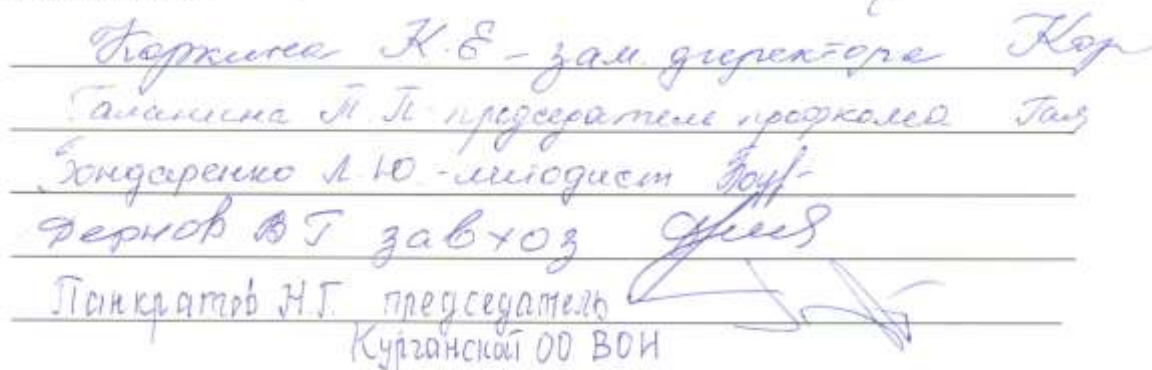 Коркина К.Е - зам. директора Кор
Галанина Т.П. председатель профкома Гал
Бондаренко Л.Ю. - методист
Дернов В Г завхоз
Панкратов Н.Г. председатель
Курганской ОО ВОИ